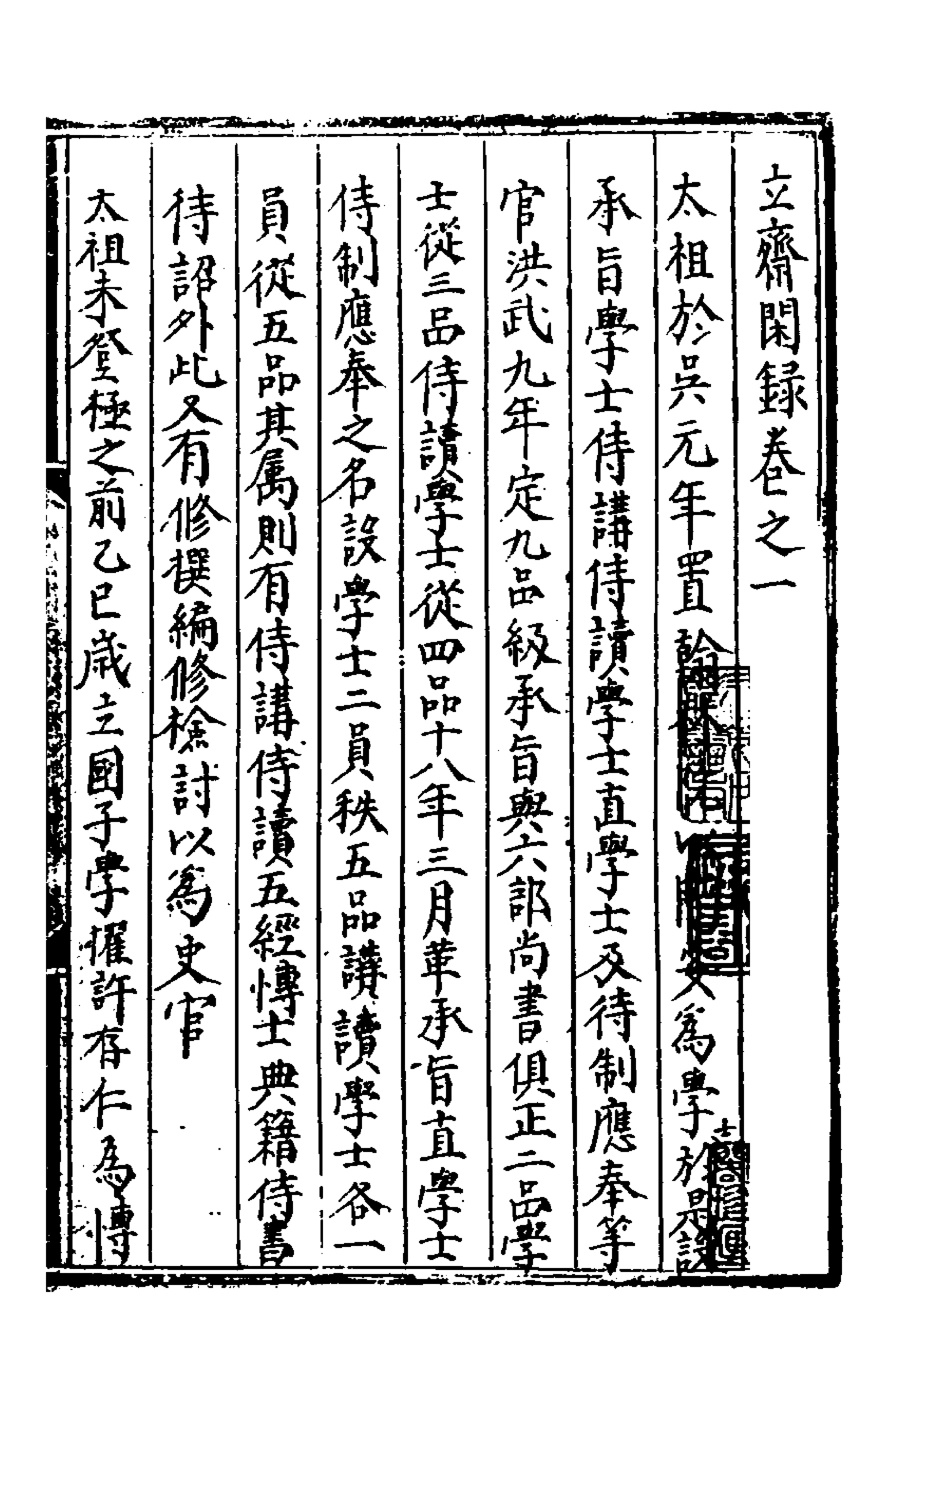 立齋閑録卷之一
太祖於吳元年置翰林 以陶安為學於是設
承旨學士侍講侍讀學士直學士及待制應奉等
官洪武九年定九品級承旨與六部尚書俱正二品學
士從三品侍讀學士從四品十八年三月革承旨直學士
侍制應奉之名設學士二員秩五品講讀學士各一
員從五品其属則有侍講侍讀五經博士典籍侍書
待詔外此又有修撰編修檢討以為史官
太祖未登極之前乙巳歳立國子學擢許存仁為博